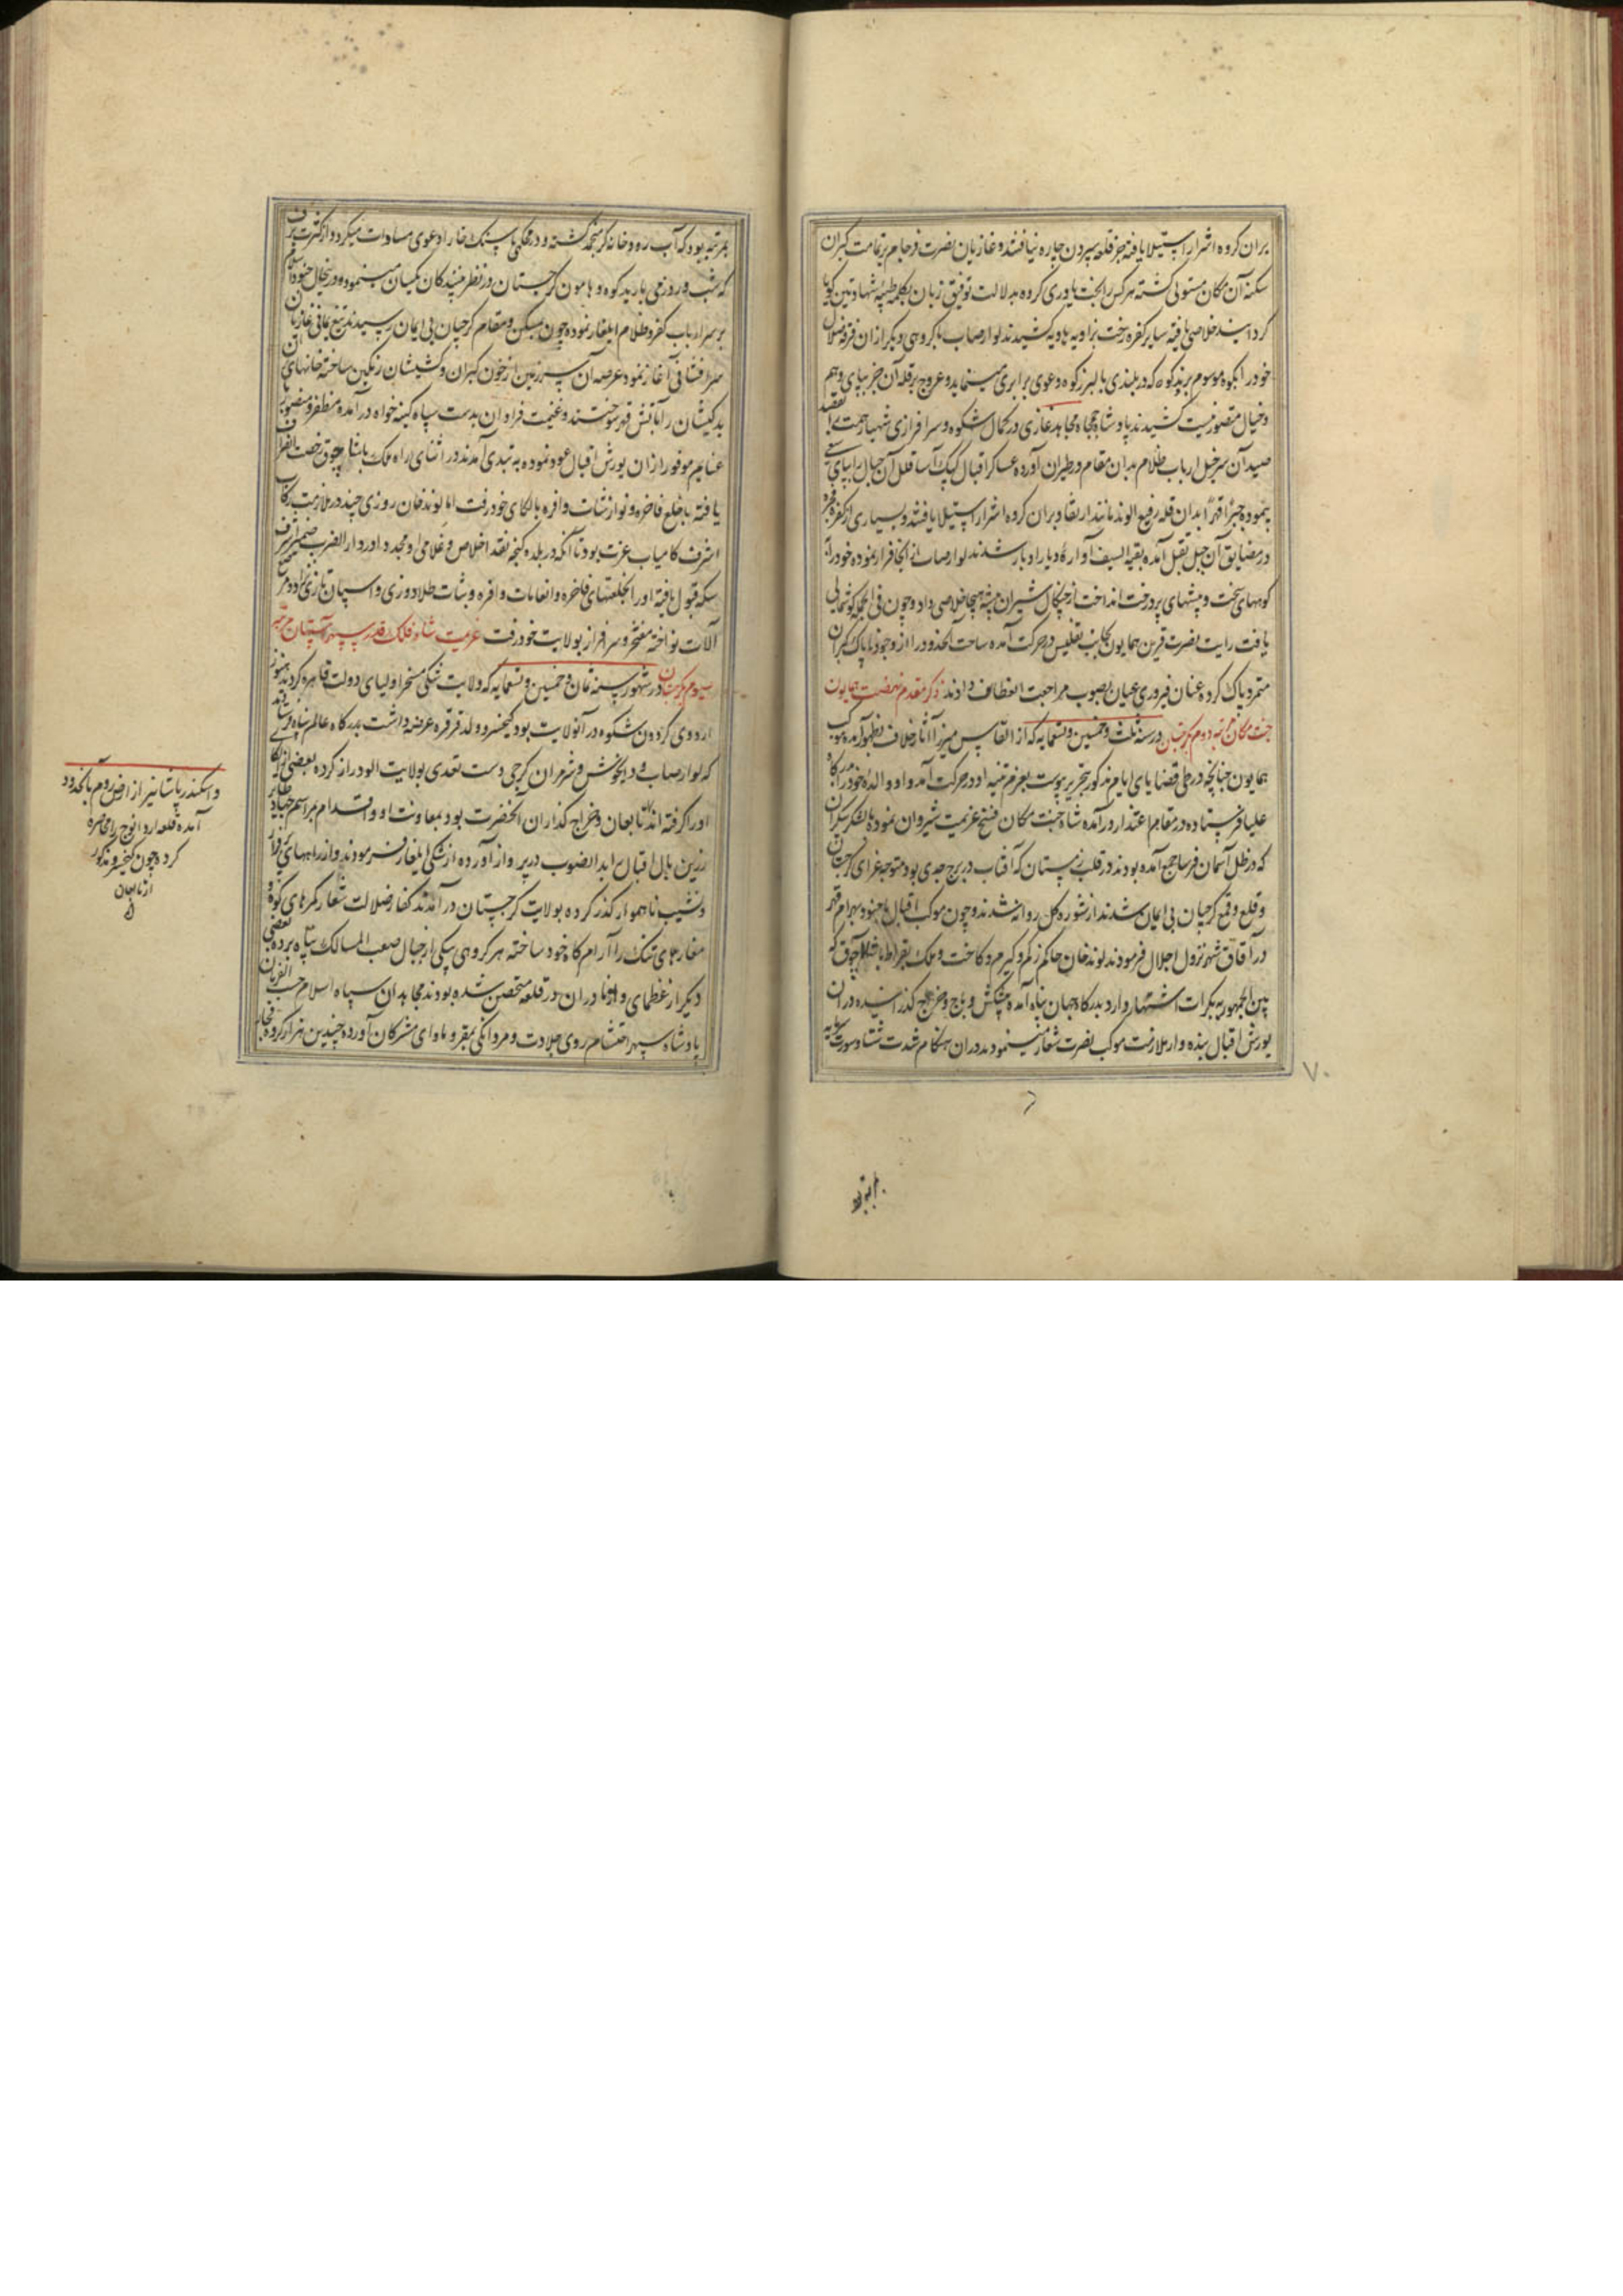 بران کروه اشرار استیلا یافته جز قلعه سپردن چاره نیافتند و غازیان نصرت فرجام بر تمامت کبران
سکنه آن مکان مستولی کشته هر کس را بخت یاوری کرده بدلالت توفیق زبان بکلمه طیبه شهادتین کویا
کردانید خلاصی یافته سایر کفره رخت بزاویه هاویه کشیدند لوارصاب با کروهی دیکر از ان فرقه ضلال
خود را بکوه موسوم بدید کوه که در بلندی با البرز کوه دعوی برابری مینماید و عروج بر قله آن جز بپای وهم
و خیال متصور نیست کشیدند پادشاه جمجاه مجاهد غازی در کمال شکوه و سرافرازی شهباز همت را بقصد
صید آن سرخیل ارباب ظلام بدان مقام در طیران آورده عساکر اقبال کبک آسا قلل آن جبال را بپای سعی
پیموده جبرا قهرا بدان قله رفیع الوند مانند ارتقا و بران کروه اشرار استیلا یافتند و بسیاری از کفره فجره
در مضایق آن جبل بقتل آمده بقیه السیف آواره دیار ادبار شدند لوارصاب از انجا فرار نموده خود را به
کوههای سخت و بیشهای پر درخت انداخت از چنکال شیران بیشه هیجا خلاصی داد و چون فی الجمله کوشمالی
یافت رایت نصرت قرین همایون بجانب تفلیس در حرکت آمده ساحت آنحدود را از وجود ناپاک کبران
متمرد پاک کرده عنان فیروزی عیان بصوب مراجعت انعطاف دادند ذکر مقدم نهضت همایون
جنت مکان مرتبه دوم بکرجستان در سنه ثلث و خمسین و تسعمایه که از القاس میرزا آثار خلاف بظهور آمده موکب
همایون چنانچه در طی قضایای ایام مذکور بتحریر پیوست بعزم تنبیه او در حرکت آمد و او والده خود را بدرکاه
علیا فرستاده در مقام اعتذار درآمده شاه جنت مکان فسخ عزیمت شیروان نموده با لشکر بیکران
که در ظل آسمان فرسا جمع آمده بودند در قلب زمستان که آفتاب در برج جدی بود متوجه غزای کرجستان
و قلع و قمع کرجیان بی ایمان شدند از شوره کل روانه شدند و چون موکب اقبال با جنود بهرام قهر
در آقاق شهر نزول اجلال فرمودند لوندخان حاکم زکم و کیرم و کاخت و ملک بقراط باشاچوق که
بین الجمهور به بکرات اشتهار دارد بدرکاه جهان پناه آمده پیشکش و باج و خراج کذرانیده در آن
یورش اقبال بنده وار ملازمت موکب نصرت شعار مینمودند در ان هنکام شدت شتا و سورت سرما
۷۰
بمرتبه بود که آب رود خانه کر منجمد کشته و در محکمی با سنک خارا دعوی مساوات میکرد و از کثرت برف
که شب و روز می بارید کوه و هامون کرجستان در نظر بینندکان یکسان مینمود و در چنین حال جنود اسلام
بر سر ارباب کفر و ظلام ایلغار نموده چون بمسکن و مقام کرجیان بی ایمان رسیدند تیغ یمانی غازیان
سرافشانی آغاز نمود عرصه آن سرزمین از خون کبران و کشیشان رنکین ساخته خانهای آن
بدکیشان را بآتش قهر سوختند و غنیمت فراوان بدست سپاه کینه خواه درآمده مظفر و منصور با
غنایم موفور از ان یورش اقبال عود نموده به تبدی آمدند در اثنای راه ملک باشاچوق رخصت انصراف
یافته با خلع فاخره و نوازشات وافره بالکای خود رفت اما لوندخان روزی چند در ملازمت رکاب
اشرف کامیاب عزت بود تا آنکه در بلده کنجه نقد اخلاص و غلامی او مجددا در دار الضرب ضمیر اشرف
سکه قبول یافته او را بخلعتهای فاخره و انعامات وافره و بشات طلادوزی و اسپان تازی نژاد مرصع
آلات نواخته مفتخر و سرافراز بولایت خود رفت عزیمت شاه فلک قدر سپهر آستان مرتبه
سیوم بکرجستان در شهور سنه ثمان و خمسین و تسعمایه که ولایت شکی مسخر اولیای دولت قاهره کردید هنوز
اردوی کردون شکوه در آنولایت بود کیخسرو ولد قرقره عرضه داشت بدرکاه عالم پناه فرستاد
که لوارصاب و دیخونش و شرمزان کرجی دست تعدی بولایت او دراز کرده بعضی از الکا
او را کرفته اند تابعان و خراج کذاران آنحضرت بود بمعاونت او و اقدام مراسم جهاد طایر
زرین بال اقبال برابد الصوب در پرواز آورده از شکی ایلغار فرمودند و از راههای پر فراز
و نشیب ناهموار کذر کرده بولایت کرجستان درآمدند کفار ضلالت شعار کمرهای کوه و
مغارهای تنک را آرامکاه خود ساخته هر کروهی بیکی از جبال صعب المسالک پناه برده بعضی
دیکر از عظمای و ازناوران در قلعه متحصن شده بودند مجاهدان سپاه اسلام حسب الفرمان
پادشاه سپهر احتشام روی جلادت و مردانکی بمقر و ماوای مشرکان آورده چندین هزار کروه فجار
و اسکندر پاشا نیز از ارض روم بآنحدود
آمده قلعه اردانوج را محاصره
کرده چون کیخسرو مذکور
از تابعان